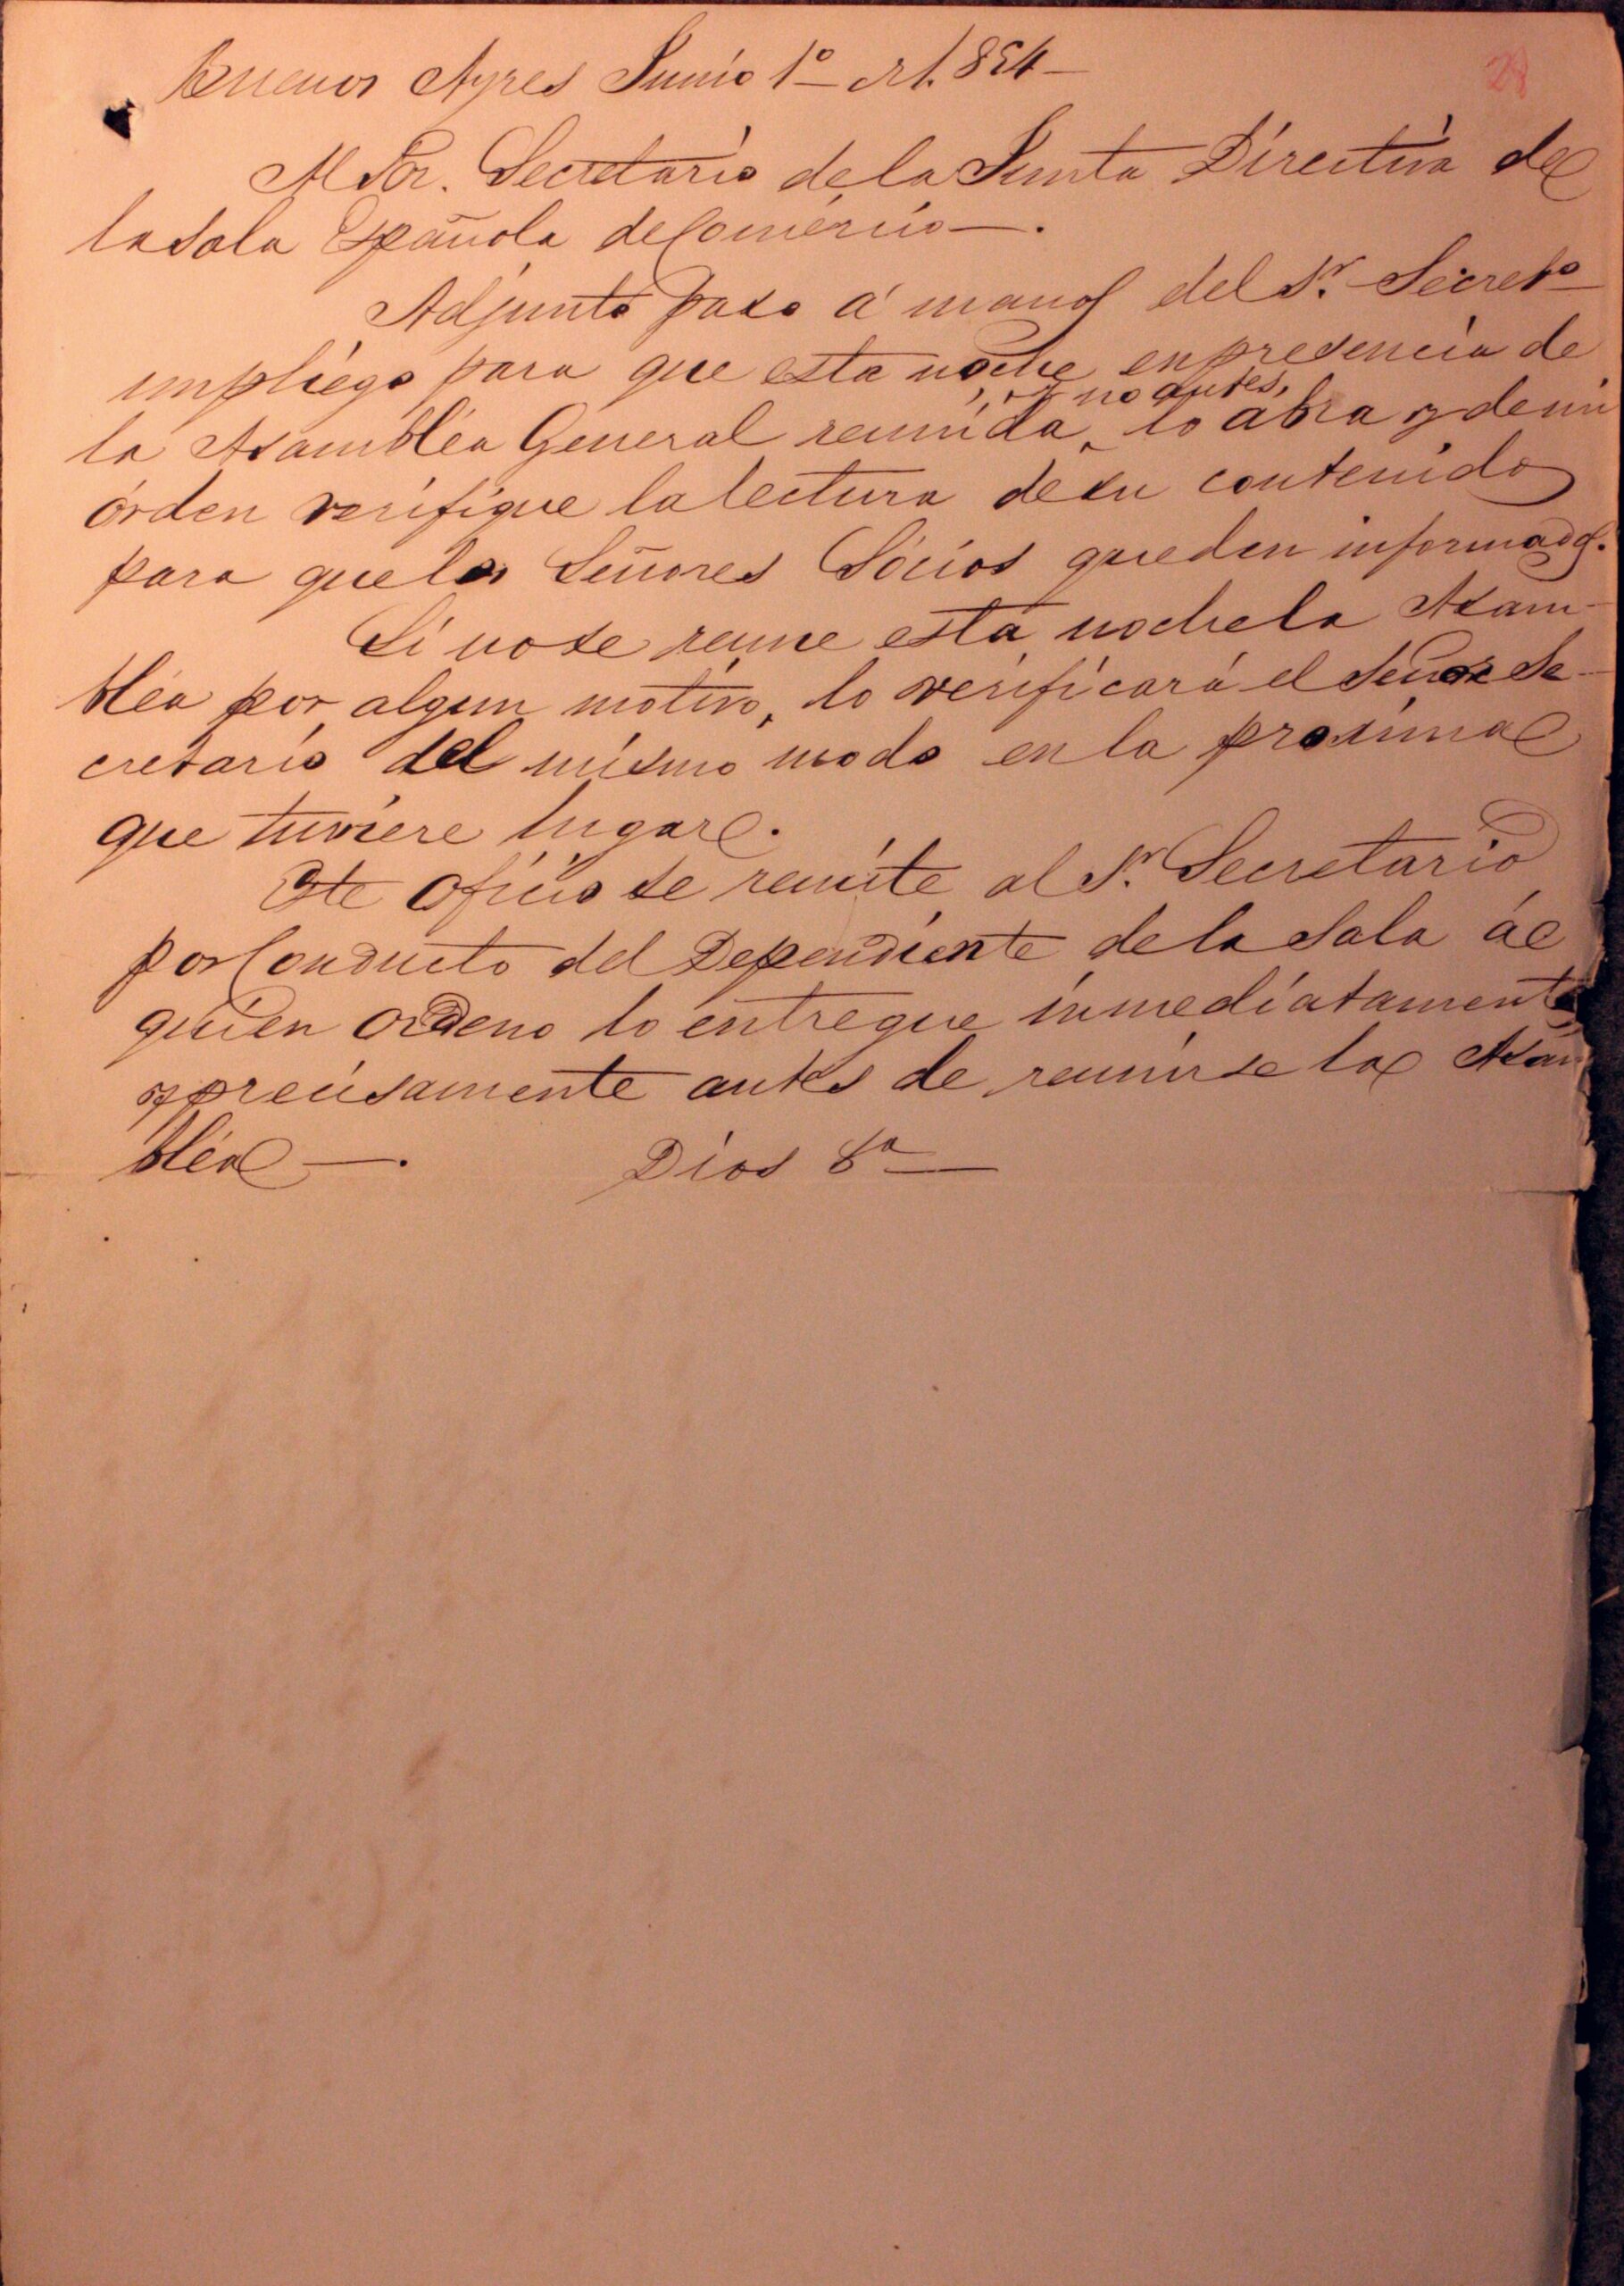 28
Buenos Ayres Junio 1º de 1.854
Al Sor. Secretario de la Junta Directiva de
la Sala Española de Comércio.
Adjunto paso á manos del Sr. Secreto
un pliego para que esta noche en presencia de
, y no antes,
la Asambléa General reunida, lo abra y de mi
órden verifique la lectura de su contenido
para que los Señores Sócios queden informados.
Si no se reune esta noche la Asam-
bléa por algun motivo, lo verificará el Señor Se-
cretario del mismo modo en la proxima
que tuviere lugar.
Este oficio se remite al Sr. Secretario
por Conducto del Dependiente de la Sala á
quien ordeno lo entregue inmediatamente
y precisamente antes de reunirse la Asam
bléa —. Dios &a